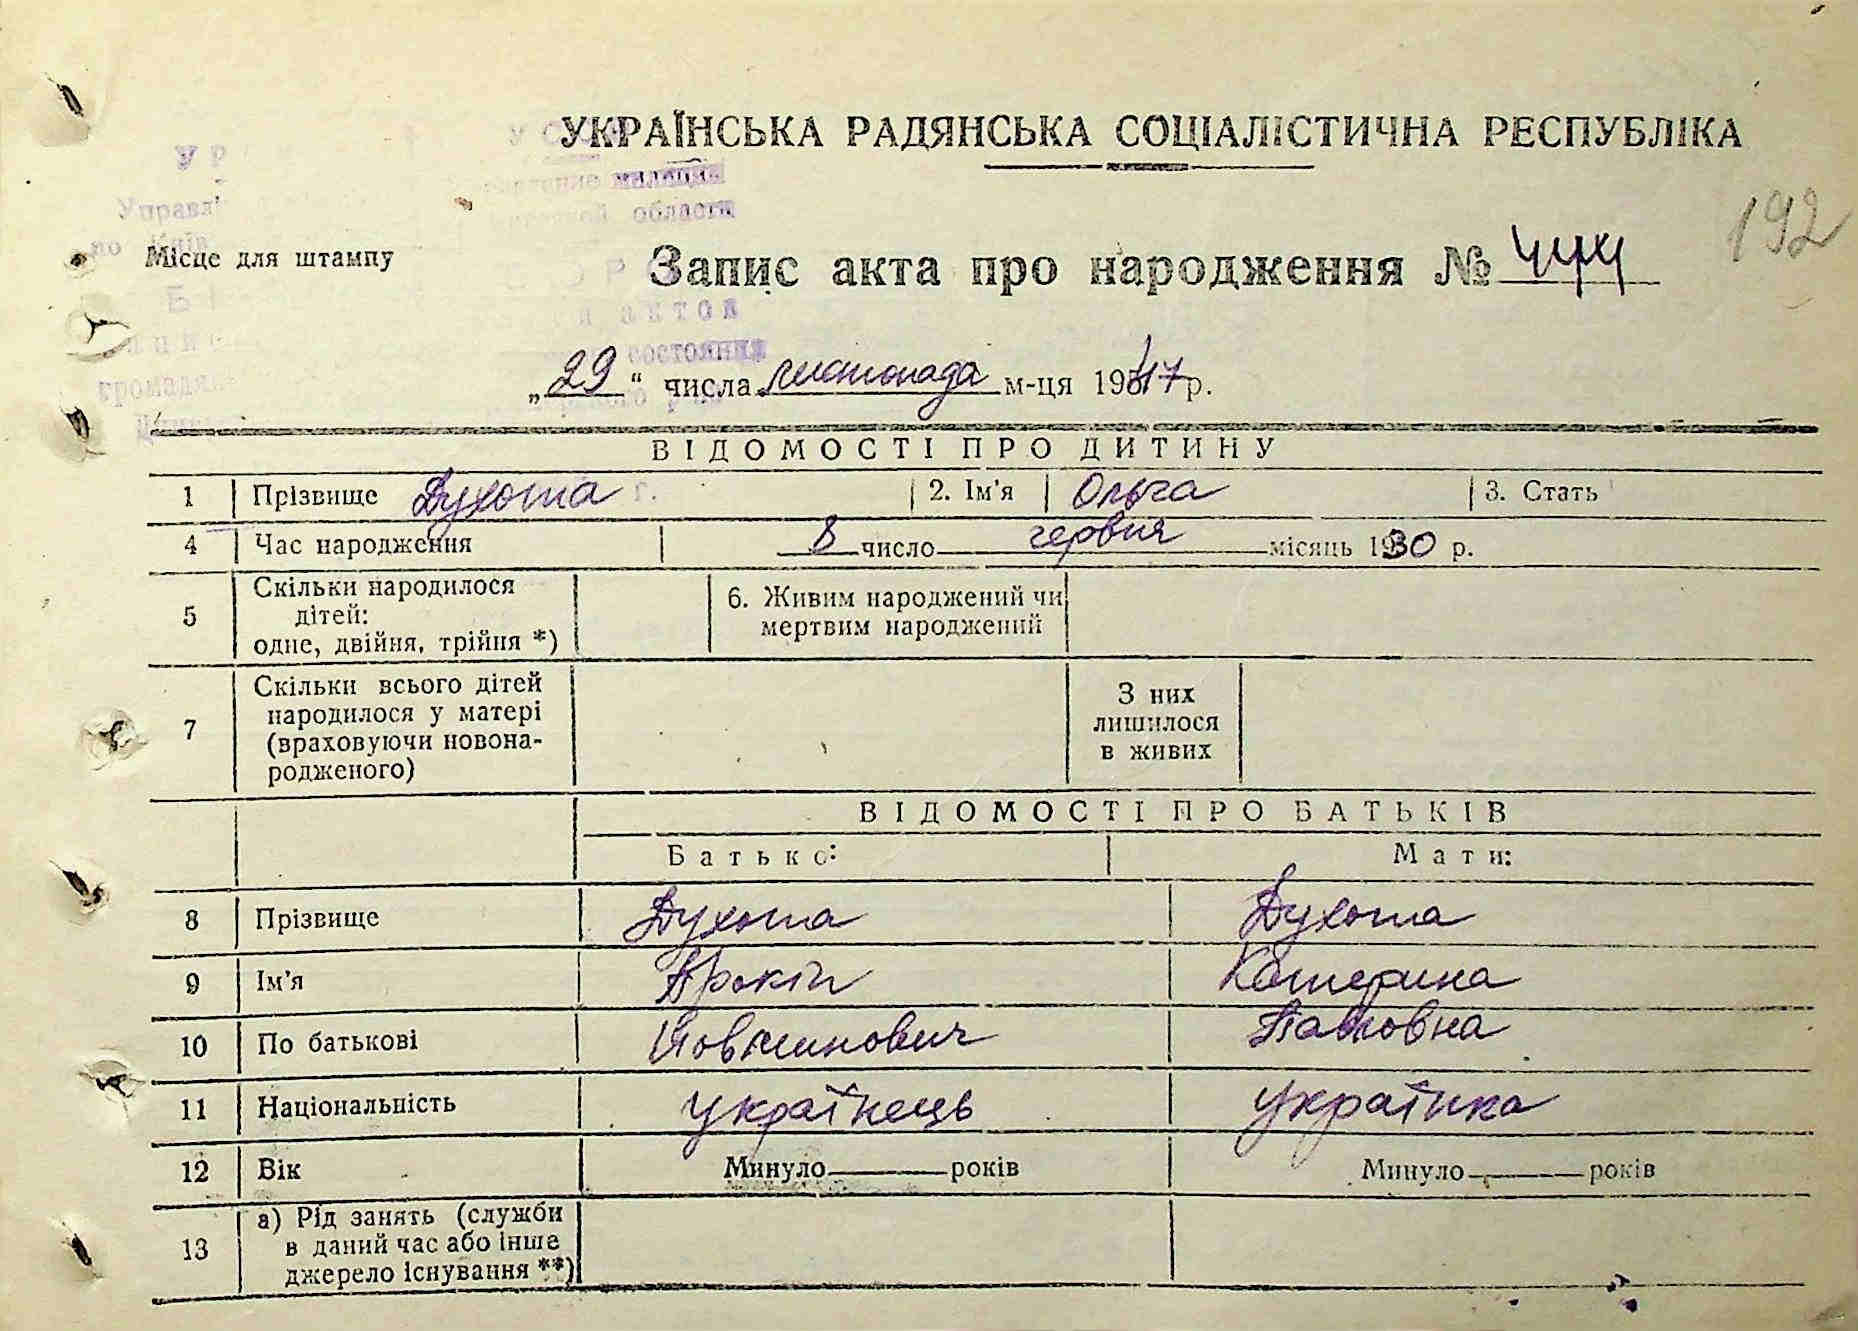 УКРАЇНСЬКА РАДЯНСЬКА СОЦІАЛІСТИЧНА РЕСПУБЛІКА
192
милиции
области
Місце для штампу
Запис акта про народження № 444
актов
состояния
„29“ числа листопада м-ця 1947 р.
ВІДОМОСТІ ПРО ДИТИНУ
1 Прізвище Духота 2. Ім'я Ольга 3. Стать
4 Час народження 8 число червня місяць 1930 р.
5 Скільки народилося дітей: одне, двійня, трійня *) 6. Живим народжений чи мертвим народжений
7 Скільки всього дітей народилося у матері (враховуючи новона-родженого) З них лишилося в живих
ВІДОМОСТІ ПРО БАТЬКІВ
Батько: Мати:
8 Прізвище Духота Духота
9 Ім'я Прокіп Катерина
10 По батькові Павловна
11 Національність українець українка
12 Вік Минуло років Минуло років
13 а) Рід занять (служби в даний час або інше джерело існування **)